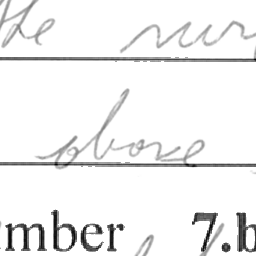 the
above
mber 7.b